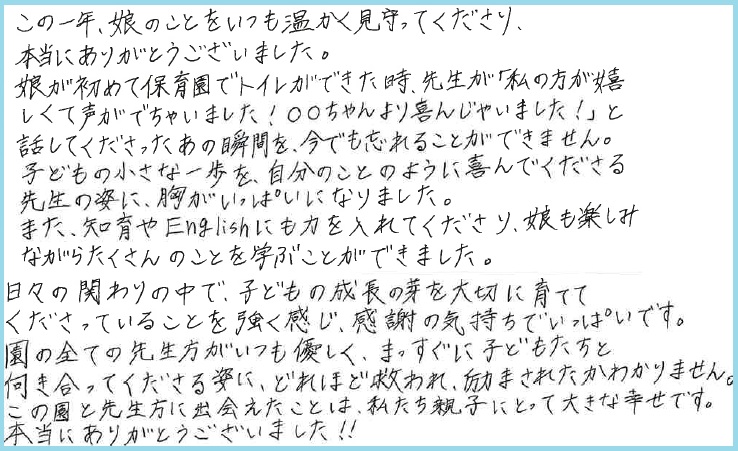 この一年、娘のことをいつも温かく見守ってくださり、
本当にありがとうございました。
娘が初めて保育園でトイレができた時、先生が「私の方が嬉
しくて声がでちゃいました！〇〇ちゃんより喜んじゃいました！」と
話してくださったあの瞬間を、今でも忘れることができません。
子どもの小さな一歩を、自分のことのように喜んでくださる
先生の姿に、胸がいっぱいになりました。
また、知育やEnglishにも力を入れてくださり、娘も楽しみ
ながらたくさんのことを学ぶことができました。
日々の関わりの中で、子どもの成長の芽を大切に育てて
くださっていることを強く感じ、感謝の気持ちでいっぱいです。
園の全ての先生方がいつも優しく、まっすぐに子どもたちと
向き合ってくださる姿に、どれほど救われ、励まされたかわかりません。
この園と先生方に出会えたことは、私たち親子にとって大きな幸せです。
本当にありがとうございました!!